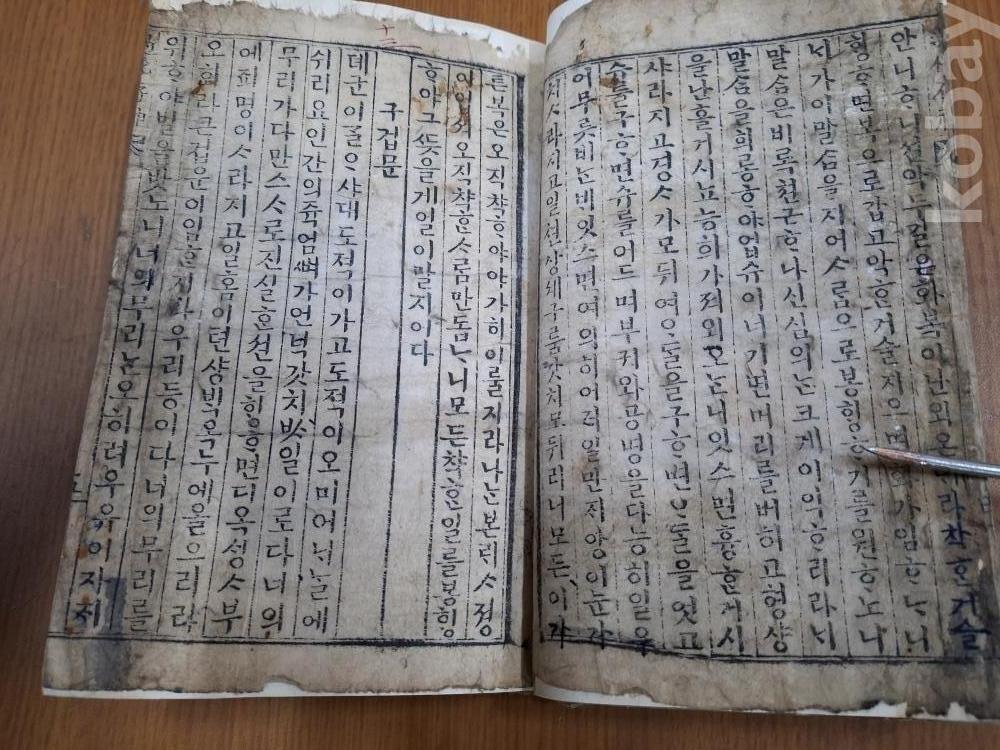 안니ᄒᆞ니션악두길은화복이난회온라챡ᄒᆞᆫ거슬
힝ᄒᆞ면복으로갑고악ᄒᆞᆫ거슬지으면화가임ᄒᆞᄂᆞ니
ᄂᆡ가이말ᄉᆞᆷ을지어ᄉᆞ룸으로봉힝ᄒᆞ기를원ᄒᆞ노니
말ᄉᆞᆷ은비록쳔근ᄒᆞ나신심의ᄂᆞᆫ크게이익ᄒᆞ리라ᄂᆡ
말ᄉᆞᆷ을희롱ᄒᆞ야업슈이녀기면머리를버히고형샹
을난흘거시뇨능히가져외오ᄂᆞ니잇스면흉ᄒᆞᆫ거시
샤라지고경ᄉᆞ가모뒤여ᄋᆞ들을구ᄒᆞ면ᄋᆞ들을엇고
슈를구ᄒᆞ면슈를어드며부귀와공명을다능히일우
어무릇비ᄂᆞᆫ비잇스면여의히어더일만ᄌᆡ앙이눈갓
치스라지고일쳔샹셰구룸갓치모뒤리니모든이갓
튼복은오직챡ᄒᆞ야야가히이룰지라나ᄂᆞᆫ본ᄃᆡᄉᆞ졍
이업셔오직챡ᄒᆞᆫᄉᆞ룸만돕ᄂᆞ니모든챡ᄒᆞᆫ일를봉힝
ᄒᆞ아그ᄯᅳᆺ을게일이말지이다
구겁문
뎨군이ᄀᆞᆯᄋᆞ샤대도적이가고도적이오미어ᄂᆞ날에
쉬리요인간의쥭엄ᄲᅧ가언덕갓치ᄡᅡ일이로다너의
무리가다만스스로진실ᄒᆞᆫ션을힝ᄒᆞ면디옥셩ᄉᆞ부
에죄명이ᄉᆞ라지고일홈이텬샹ᄇᆡᆨ옥누에올으리라
오회라큰겁운이임ᄒᆞᆫ지라우리등이다너의무리를
위ᄒᆞ야발음밧도니너의무리ᄂᆞᆫ오히려우우이지지
kobay